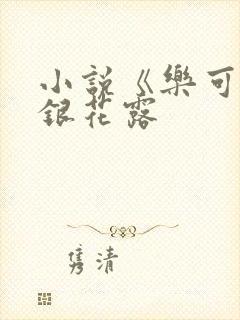 小說《樂可
銀花露
隽清